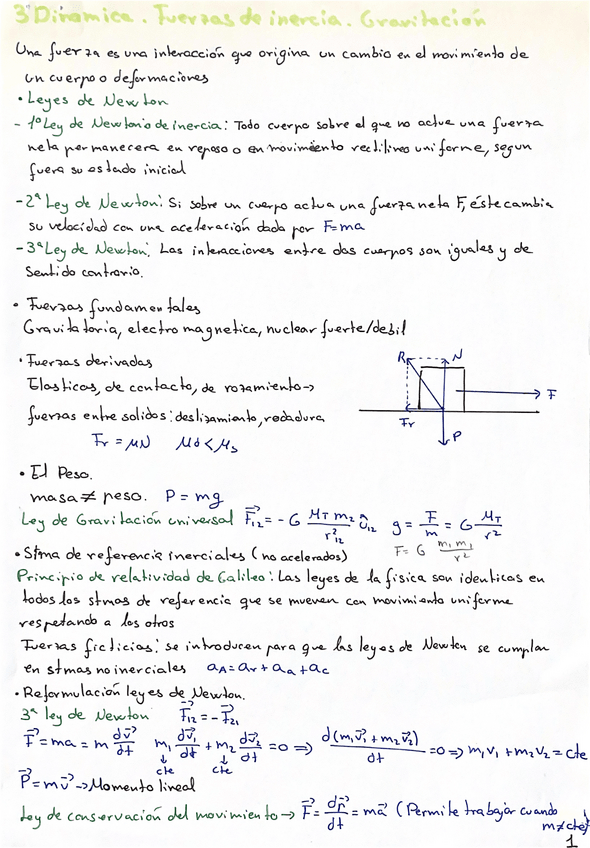 3 Dinamica. Fuerzas de inercia. Gravitación
Una fuerza es una interacción que origina un cambio en el movimiento de
un cuerpo o deformaciones
• Leyes de Newton
- 1º Ley de Newton o de inercia: Todo cuerpo sobre el que no actua una fuerza
neta permanecera en reposo o en movimiento rectilineo uniforme, segun
fuera su estado inicial
- 2ª Ley de Newton: Si sobre un cuerpo actua una fuerza neta F, éste cambia
su velocidad con una aceleración dada por F=ma
- 3ª Ley de Newton: Las interacciones entre dos cuerpos son iguales y de
sentido contrario.
• Fuerzas fundamentales
Gravitatoria, electro magnetica, nuclear fuerte/debil
• Fuerzas derivadas
Elasticas, de contacto, de rozamiento→
fuerzas entre solidos: deslizamiento, rodadura
Fr = μN μd < μs
R N F Fr P
• El Peso.
masa ≠ peso. P = mg
Ley de Gravitación universal F⃗₁₂ = - G M_T m₂ / r²₁₂ û₁₂ g = F/m = G M_T/r²
F = G m₁ m₁ / r²
• Stma de referencia inerciales (no acelerados)
Principio de relatividad de Galileo: Las leyes de la fisica son identicas en
todos los stmas de referencia que se mueven con movimiento uniforme
respetando a los otros
Fuerzas ficticias: se introducen para que las leyes de Newton se cumplan
en stmas no inerciales a_A = a_r + a_a + a_c
• Reformulación leyes de Newton.
3ª ley de Newton F⃗₁₂ = - F⃗₂₁
F⃗ = ma = m dv⃗/dt m₁ dv⃗₁/dt + m₂ dv⃗₂/dt = 0 ⇒ d(m₁v⃗₁ + m₂v⃗₂)/dt = 0 ⇒ m₁v₁ + m₂v₂ = cte
↓ cte ↓ cte
P⃗ = mv⃗ → Momento lineal
Ley de conservación del movimiento → F⃗ = dp⃗/dt = ma⃗ (Permite trabajar cuando
m≠cte)
1